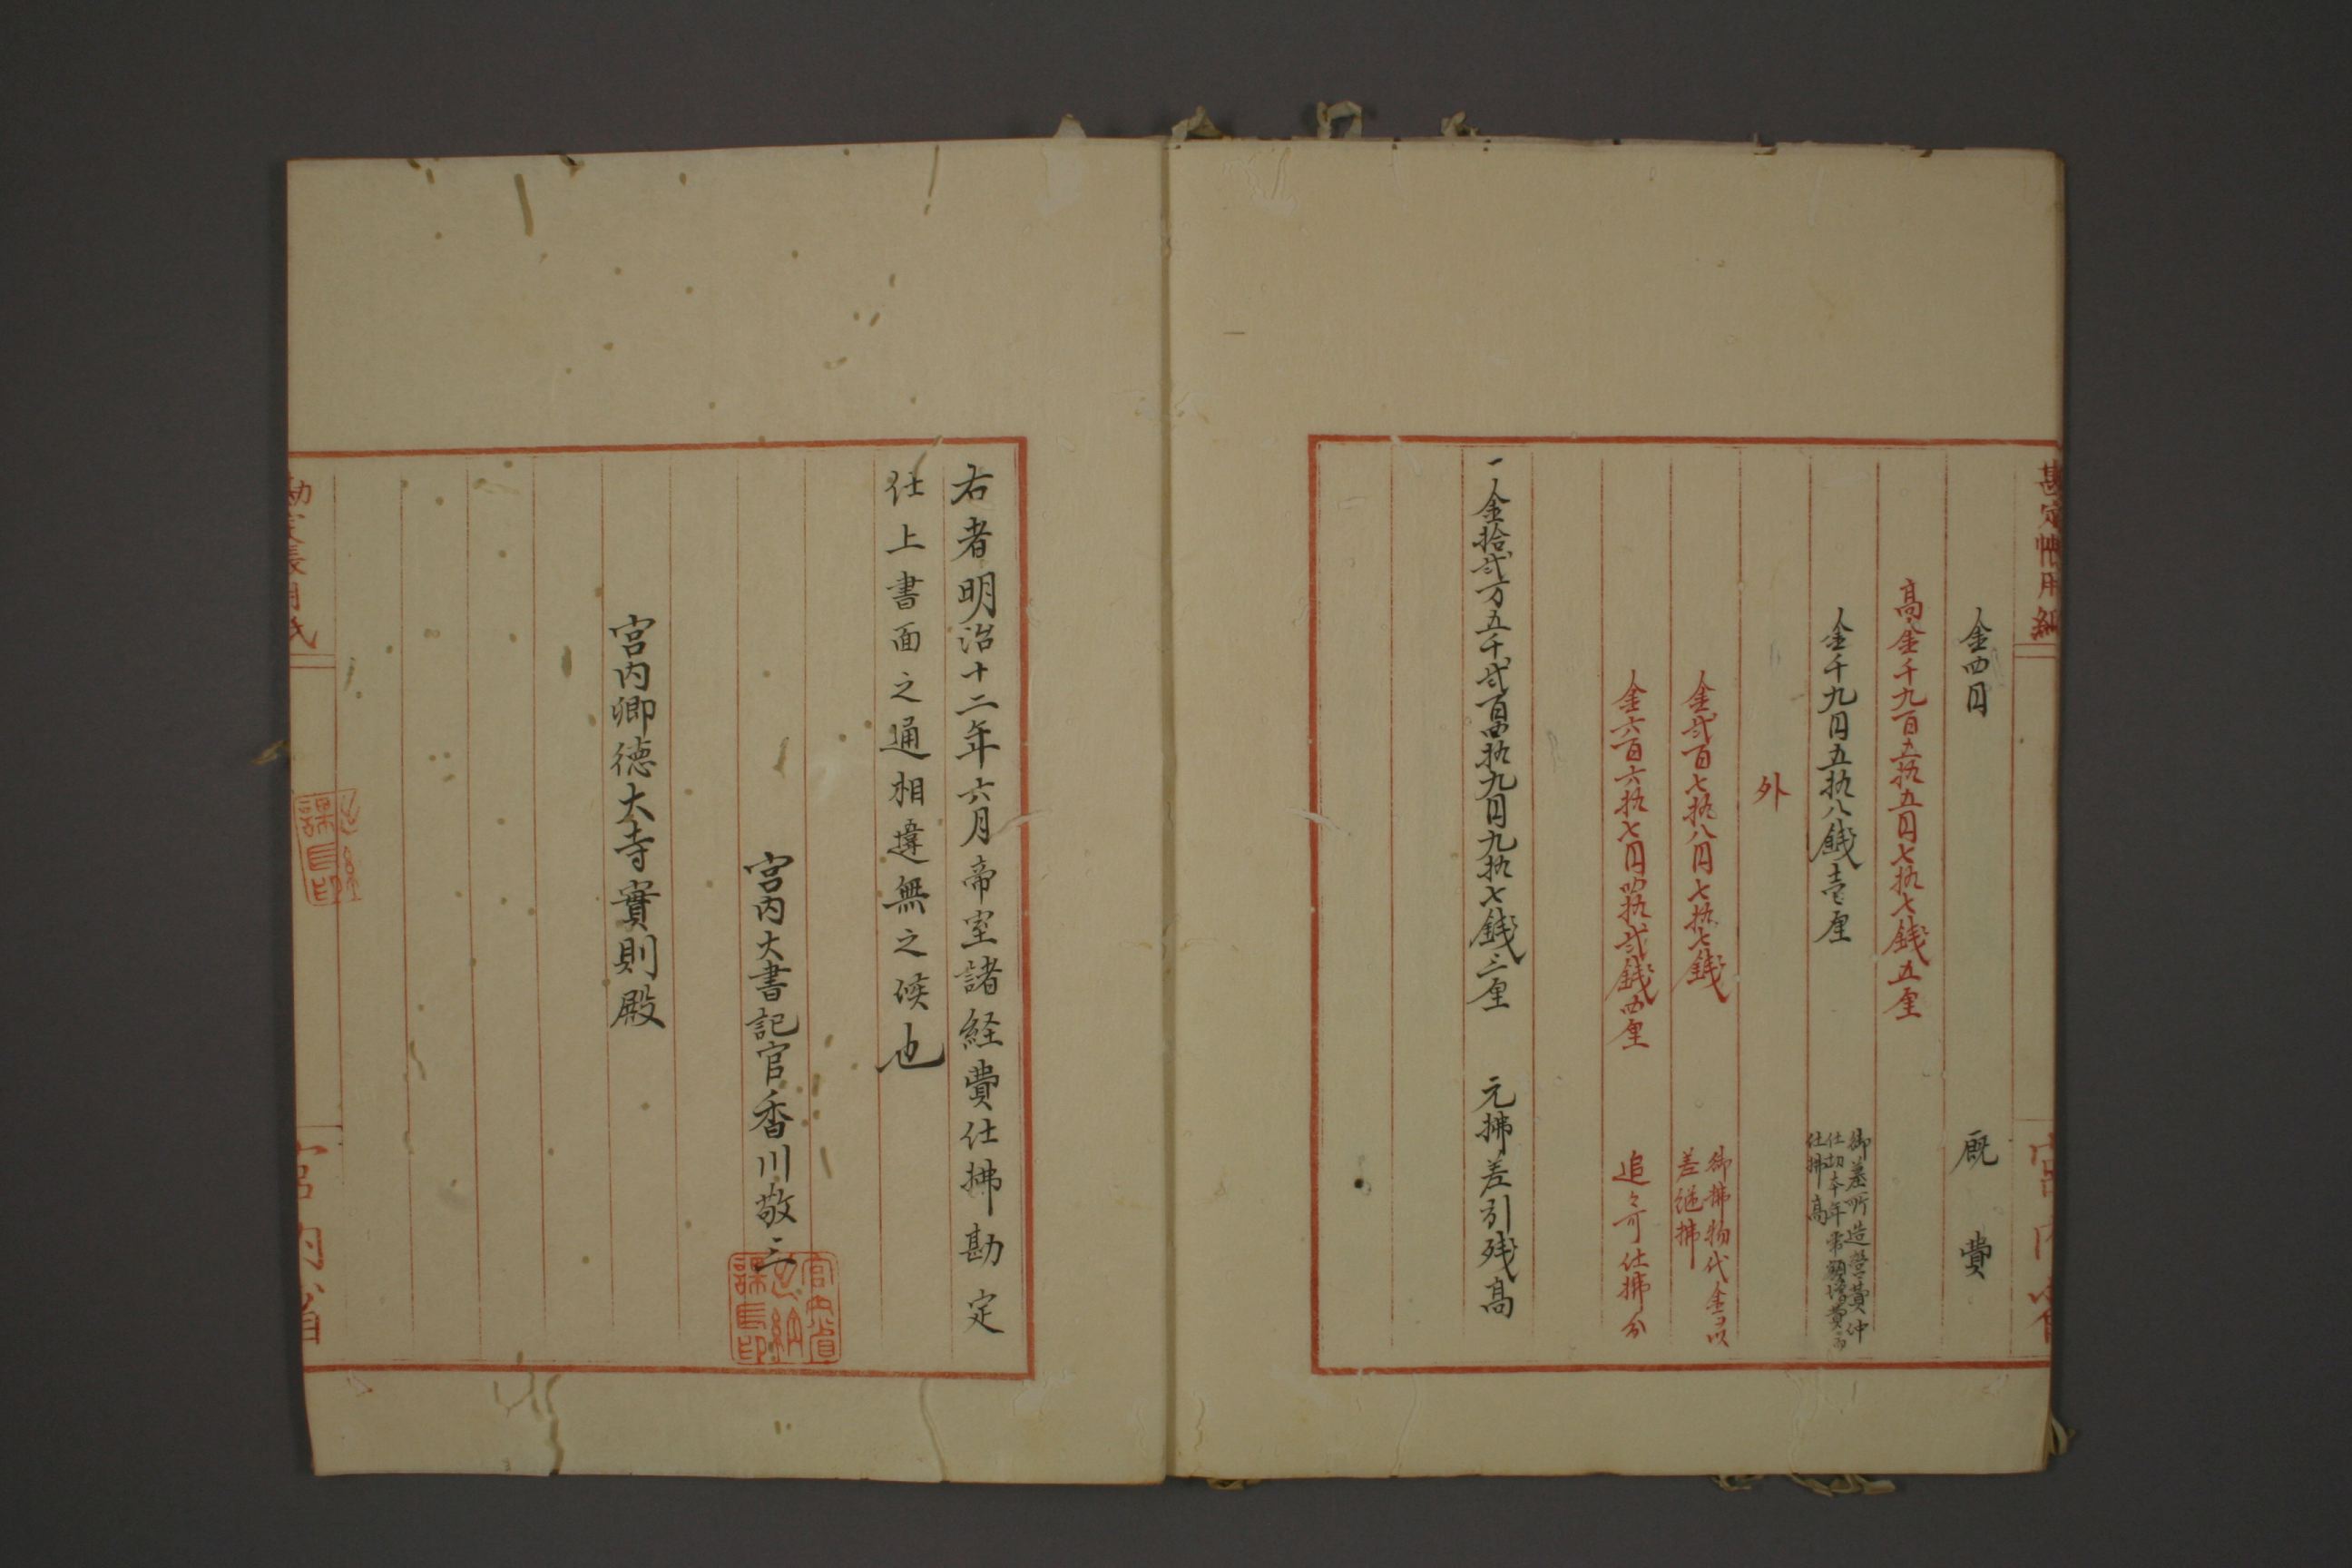 勘定帳用紙
宮内省
金四円 厩費
高金千九百五拾五円七拾七銭五厘
金千九円五拾八銭壱厘 御墓所造営費仲
仕切本年常額増費高
仕拂高
外
金弐百七拾八円七拾七銭 御拂物代金ヲ以
差継拂
金六百六拾七円四拾弐銭四厘 追々可仕拂分
一金拾弐万五千弐百四拾九円九拾七銭三厘 元拂差引残高
右者明治十二年六月帝室諸経費仕拂勘定
仕上書面之通相違無之候也
宮内大書記官香川敬三
宮内省出納課長印
宮内卿徳大寺實則殿
勘定帳用紙
宮内省